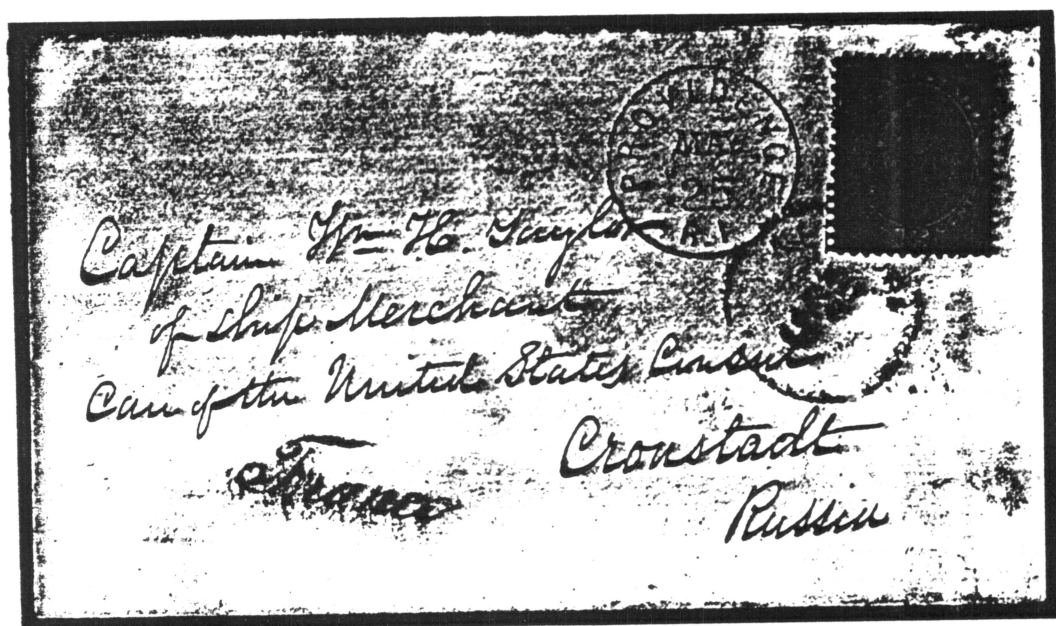 PROVIDENCE
MAY
R.I.
Captain Wm H. Taylor
of ship Merchant
Care of the United States Consul
Cronstadt
Russia
Franco